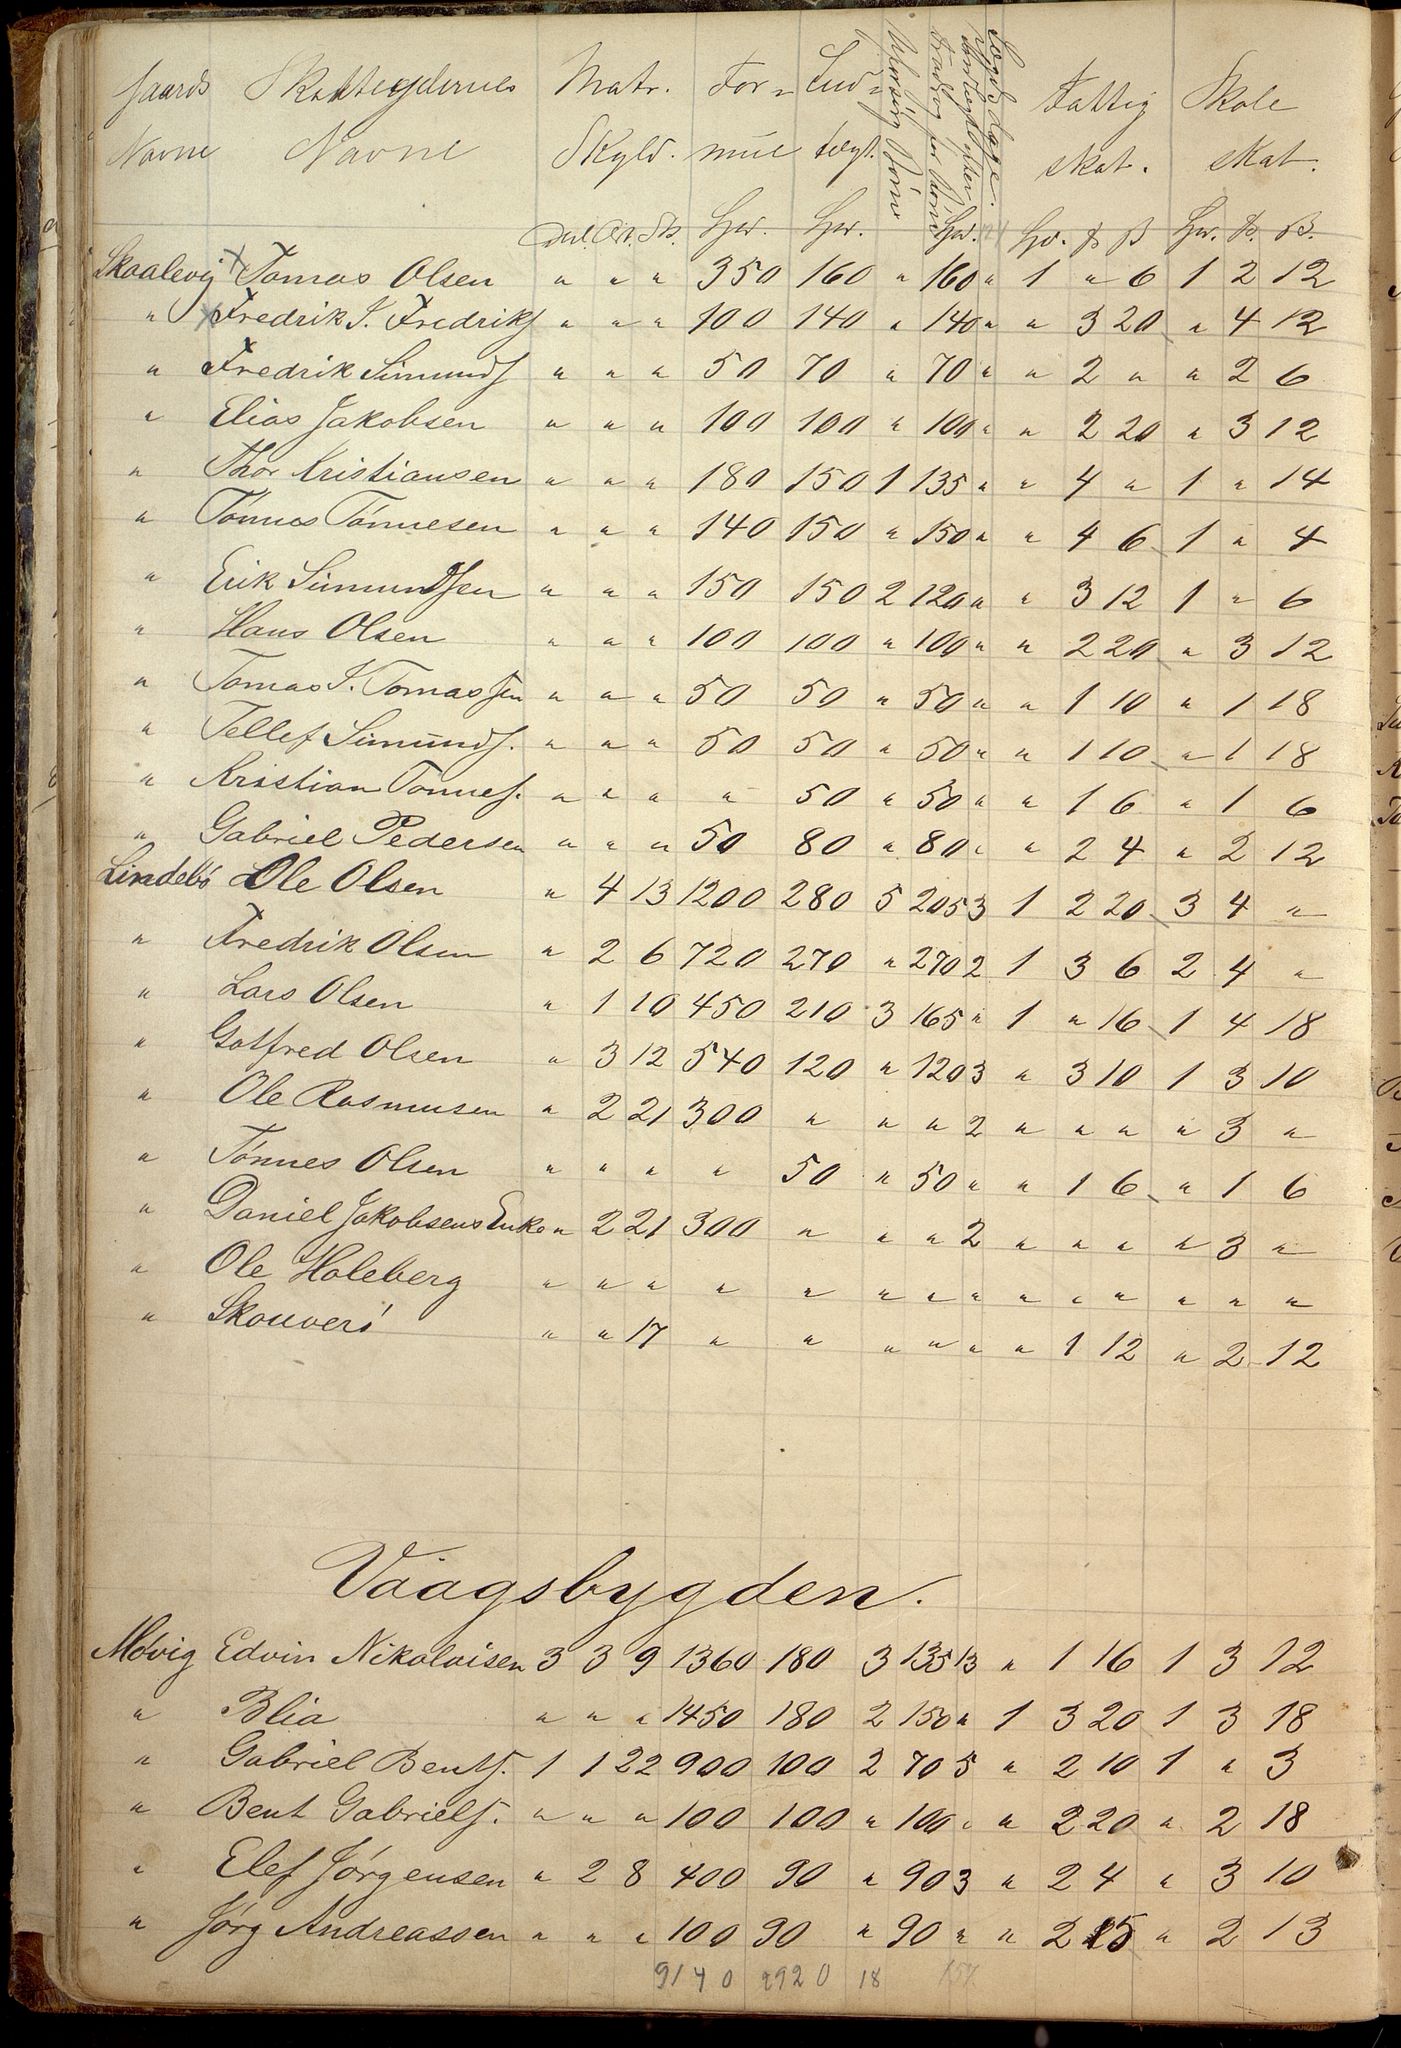 Gaards Skatteydernes Matr. For- Ind- Uforsørg Børn Fradrag for Børn Sogn dage. Fattig Skole
Navne Navne Skyld. mue tægt. skat. skat.
Dal. Ort. Sk. Spd. Spd. Spd. Spd. # ß Spd. #. ß.
Skaalevig Tomas Olsen " " " 350 160 " 160 " 1 " 6 1 2 12
" Fredrik S. Fredriks " " " 100 140 " 140 " " 3 20 " 4 12
" Fredrik Simunds " " " 50 70 " 70 " " 2 " " 2 6
" Elias Jakobsen " " " 100 100 " 100 " " 2 20 " 3 12
" Thor Kristiansen " " " 180 150 1 135 " " 4 " 1 " 14
" Tønnes Tønnesen " " " 140 150 " 150 " " 4 6 1 " 4
" Erik Simundsen " " " 150 150 2 120 " " 3 12 1 " 6
" Hans Olsen " " " 100 100 " 100 " " 2 20 " 3 12
" Tomas S. Tomassen " " " 50 50 " 50 " " 1 10 " 1 18
" Tellef Simunds. " " " 50 50 " 50 " " 1 10 " 1 18
" Kristian Tønnes. " " " " 50 " 50 " " 1 6 " 1 6
" Gabriel Pedersen " " " 50 80 " 80 " " 2 4 " 2 12
Lindebø Ole Olsen " 4 13 1200 280 5 205 3 1 2 20 3 4 "
" Fredrik Olsen " 2 6 720 270 " 270 2 1 3 6 2 4 "
" Lars Olsen " 1 10 450 210 3 165 " 1 " 16 1 4 18
" Gotfred Olsen " 3 12 540 120 " 120 3 " 3 10 1 3 10
" Ole Rasmusen " 2 21 300 " " " 2 " " " " 3 "
" Tønnes Olsen " " " " 50 " 50 " " 1 6 " 1 6
" Daniel Jakobsens Enke " 2 21 300 " " " 2 " " " " 3 "
" Ole Holeberg " " " " " " " " " " " " " "
" Skouverö " " 17 " " " " " " 1 12 " 2 12
Vaagsbygden.
Møvig Edvin Nikolaisen 3 3 9 1360 180 3 135 13 " 1 16 1 3 12
" Blia " " " 1450 180 2 150 " 1 3 20 1 3 18
" Gabriel Bents. 1 1 22 900 100 2 70 5 " 2 10 1 " 3
" Bent Gabriels. " " " 100 100 " 100 " " 2 20 " 2 18
" Elef Jørgensen " 2 8 400 90 " 90 3 " 2 4 " 3 10
" Jørg Andreassen " " " 100 90 " 90 " " 2 15 " 2 13
9140 2920 18